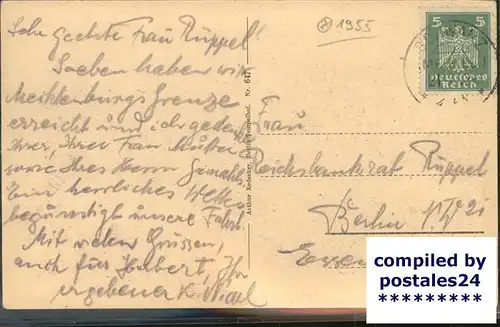 Sehr Geehrte Frau Rüppel!
Soeben haben wir
Mecklenburgs Grenze
erreicht und ich gedenke
Ihrer, Ihrer Frau Mutter
sowie Ihres Herrn Gemahls
Ein herrliches Wetter
begünstigt unsere Fahrt
Mit vielen Grüssen,
auch für Hubert, Ihr
ergebener K.
Arthur Rodecker, Berlin-Tempelhof. Nr. 647
1955
5 5
Deutsches
Reich
Frau
Reichsbankrat Rüppel
Berlin N.W 21
compiled by
postales24
*********